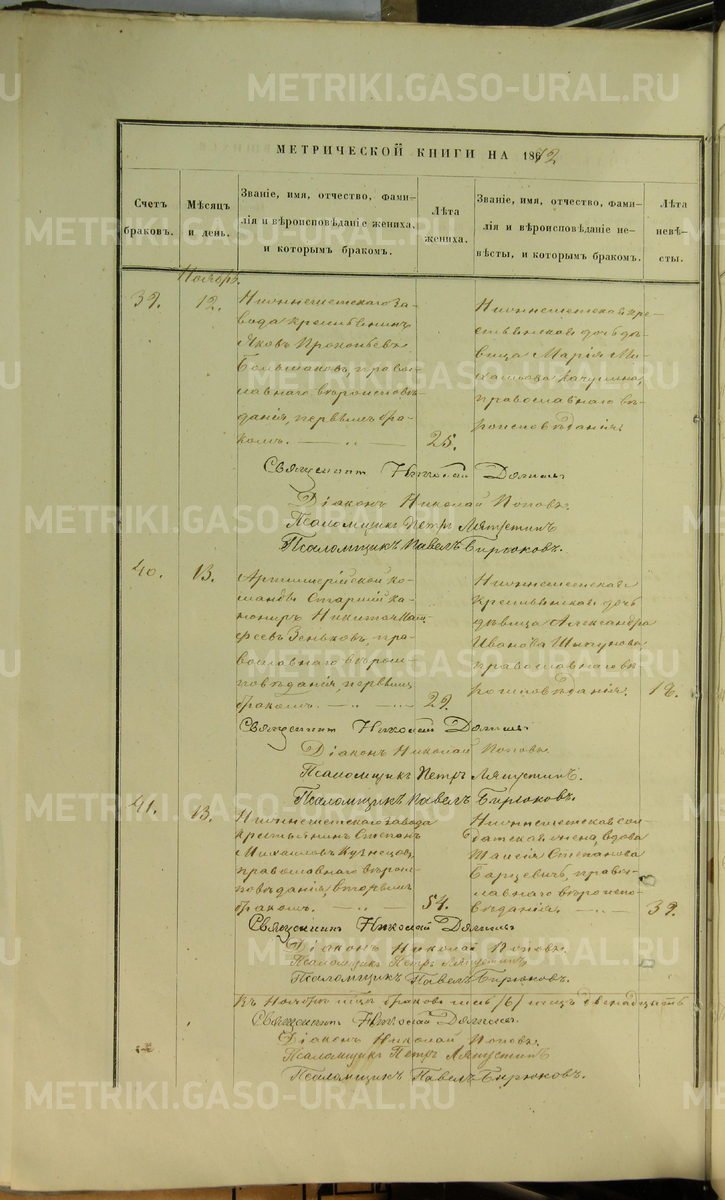 МЕТРИЧЕСКОЙ КНИГИ НА 1872
Счетъ браковъ.
Мѣсяцъ и день.
Званіе, имя, отчество, фами-
лія и вѣроисповѣданіе жениха,
и которымъ бракомъ.
Лѣта
жениха.
Званіе, имя, отчество, фами-
лія и вѣроисповѣданіе не-
вѣсты, и которымъ бракомъ.
Лѣта
невѣ-
сты.
Ноябрь.
39.
12.
завода крестьянинъ
Яковъ Прокопьевъ
Большаковъ, право-
славнаго вѣроисповѣ-
данія, первымъ бра-
комъ.
25.
кре-
стьянская дочь дѣ-
вица Марія Ми-
хайлова
православнаго вѣ-
роисповѣданія.
Священникъ Николай
Діаконъ Николай Поповъ.
Псаломщикъ Петръ Ляпустинъ
Псаломщикъ Павелъ Бирюковъ.
40.
13.
Артиллерійской ко-
манды Старшій Ка-
нониръ Никита
Зеньковъ, пра-
вославнаго вѣроис-
повѣданія, первымъ
бракомъ.
29.
крестьянская дочь
дѣвица Александра
Иванова
православнаго вѣ-
роисповѣданія.
18.
Священникъ Николай
Діаконъ Николай Поповъ.
Псаломщикъ Петръ Ляпустинъ.
Псаломщикъ Павелъ Бирюковъ.
41.
13.
завода
крестьянинъ Степанъ
Михайловъ Кузнецовъ,
православнаго вѣроис-
повѣданія, вторымъ
бракомъ.
54.
сол-
датская жена, вдова
Таисія Степанова
право-
славнаго вѣроиспо-
вѣданія.
39.
Священникъ Николай
Діаконъ Николай Поповъ.
Псаломщикъ Петръ Ляпустинъ
Псаломщикъ Павелъ Бирюковъ.
Въ Ноябрѣ м-цѣ браковъ шесть /6/ лицъ двенадцать
Священникъ Николай
Діаконъ Николай Поповъ.
Псаломщикъ Петръ Ляпустинъ
Псаломщикъ Павелъ Бирюковъ.
METRIKI.GASO-URAL.RU